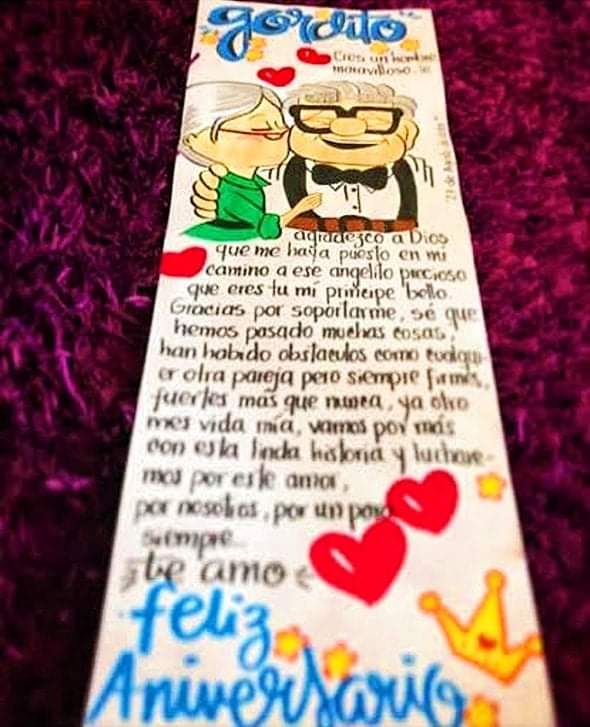 "gordito"
Eres un hombre
maravilloso...!!!
agradezco a Dios
que me haya puesto en mi
camino a ese angelito precioso
que eres tu mi principe bello.
Gracias por soportarme, sé que
hemos pasado muchas cosas,
han habido obstaculos como cualqui-
er otra pareja pero siempre firmes,
fuertes más que nunca, ya otro
mes vida mía, vamos por más
con esta linda historia y luchare-
mos por este amor,
por nosotros, por un para
siempre...
te amo
feliz
Aniversario